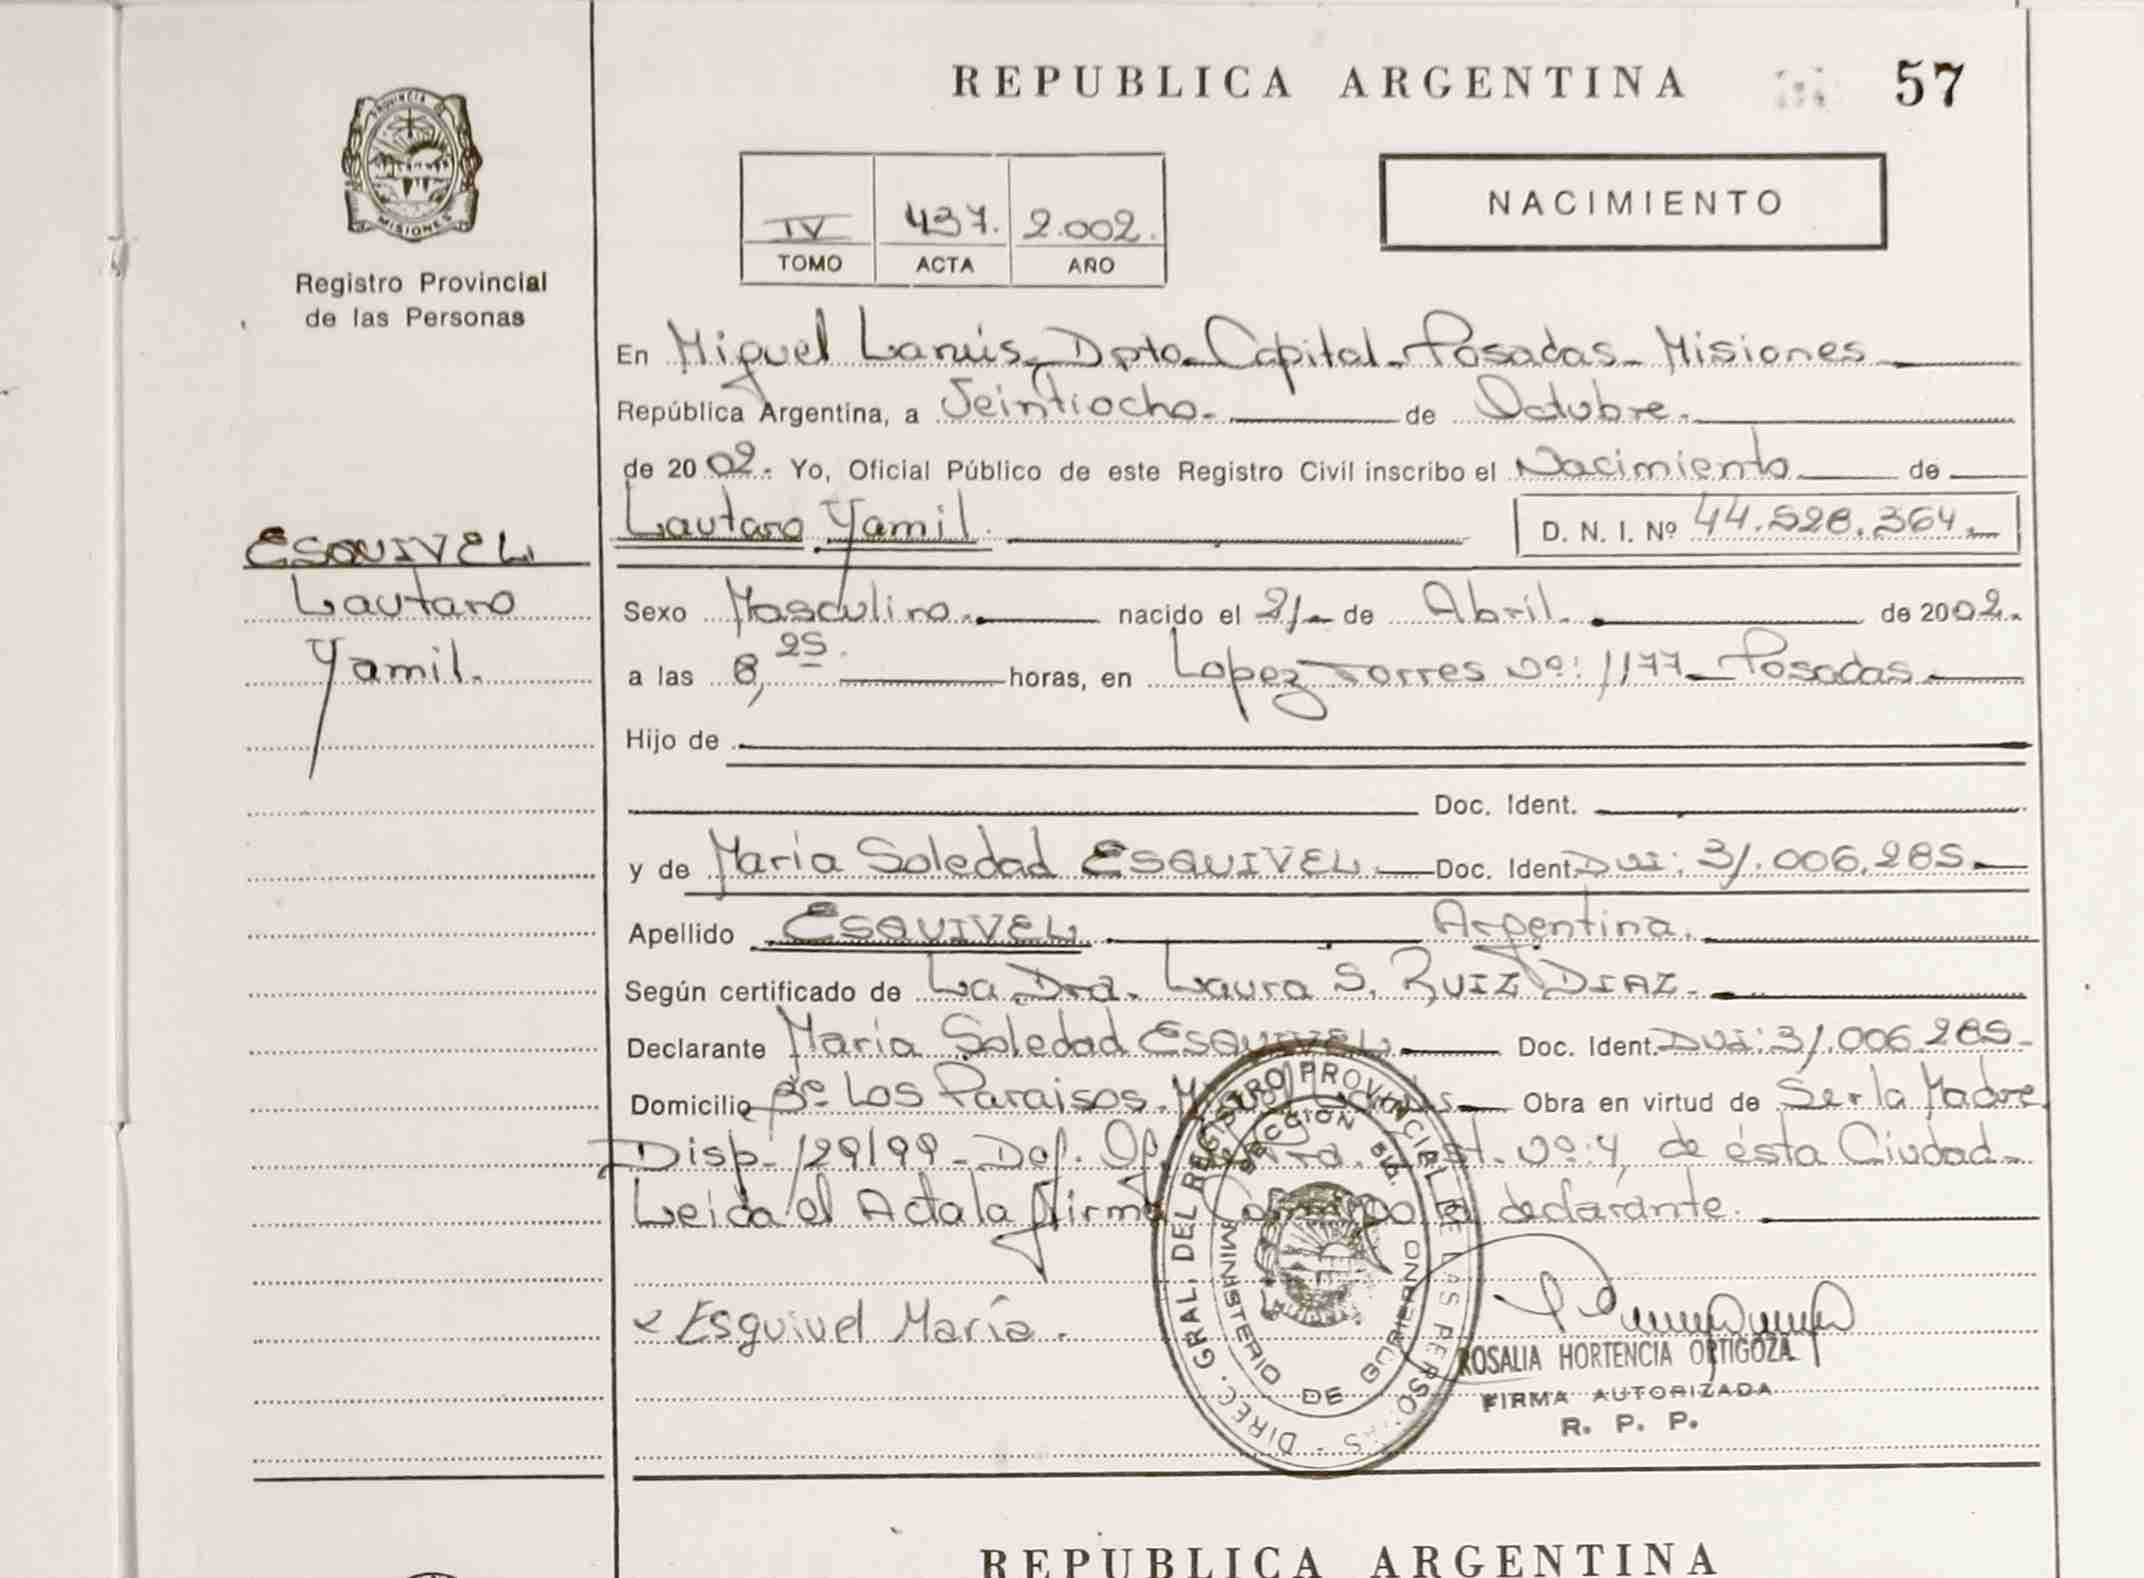 REPUBLICA ARGENTINA
57
PROVINCIA DE
MISIONES
Registro Provincial
de las Personas
IV 437. 2.002.
TOMO ACTA AÑO
NACIMIENTO
En Miguel Lanús - Dpto - Capital - Posadas - Misiones
República Argentina, a Veintiocho - de Octubre.
de 2002. Yo, Oficial Público de este Registro Civil inscribo el Nacimiento de
Lautaro Yamil. D. N. I. Nº 44.528.364.
ESQUIVEL
Lautaro
Yamil.
Sexo Masculino. nacido el 21- de Abril. de 2002.
a las 8,25. horas, en Lopez Torres Nº: 1177 - Posadas
Hijo de
Doc. Ident.
y de María Soledad ESQUIVEL. Doc. Ident. DNI: 31.006.285.
Apellido ESQUIVEL Argentina.
Según certificado de La Dra. Laura S. RUIZ DIAZ.
Declarante María Soledad ESQUIVEL Doc. Ident. DNI: 31.006.285-
Domicilio Bº Los Paraisos. Obra en virtud de Ser la Madre
Disp- 129/99 - Def. Of. Nº: 4, de ésta Ciudad.
Leída el Acta la firma la declarante.
x Esquivel María.
DIREC. GRAL. DEL REGISTRO PROVINCIAL DE LAS PERSONAS
MINISTERIO DE GOBIERNO
ROSALIA HORTENCIA ORTIGOZA
FIRMA AUTORIZADA
R. P. P.
REPUBLICA ARGENTINA